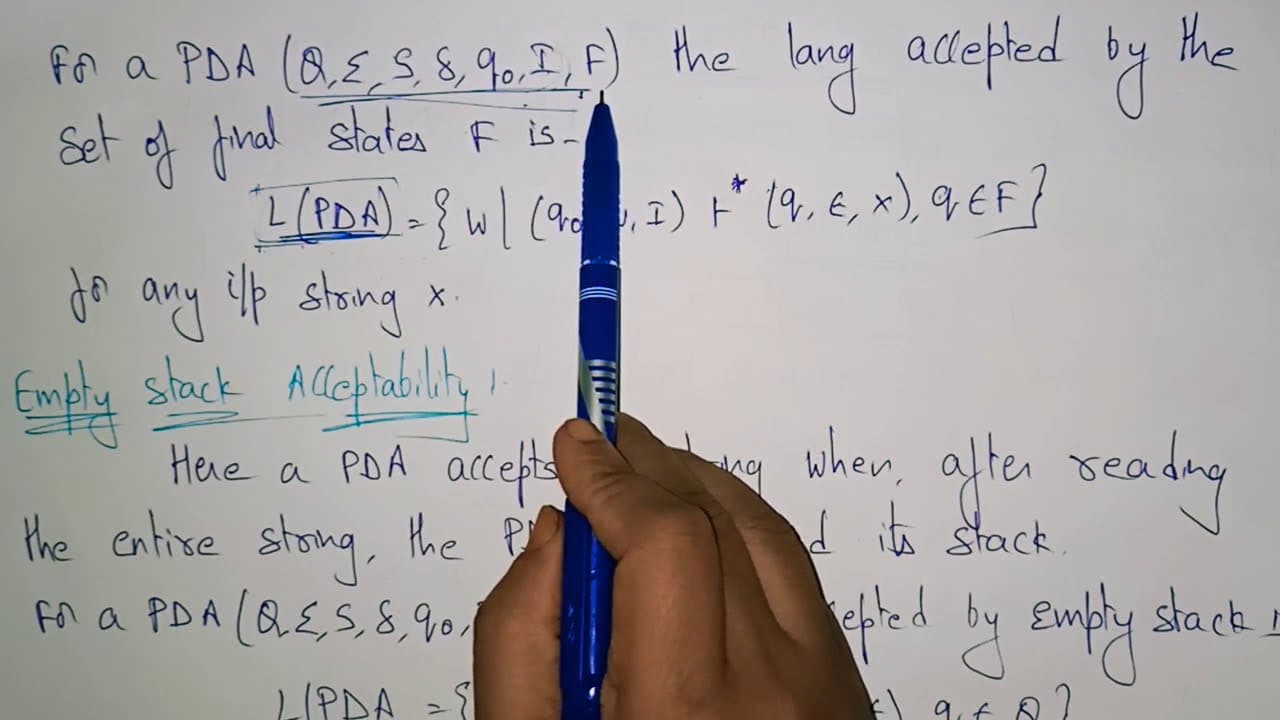 For a PDA (Q, Σ, S, δ, q₀, I, F) the lang accepted by the
set of final states F is-
L(PDA) = { w | (q₀ , I) ⊢* (q, ϵ, x), q ∈ F }
for any i/p string x.
Empty stack Acceptability :
Here a PDA accepts when, after reading
the entire string, the its stack.
For a PDA (Q, Σ, S, δ, q₀, by empty stack
L(PDA = { ), q ∈ Q }